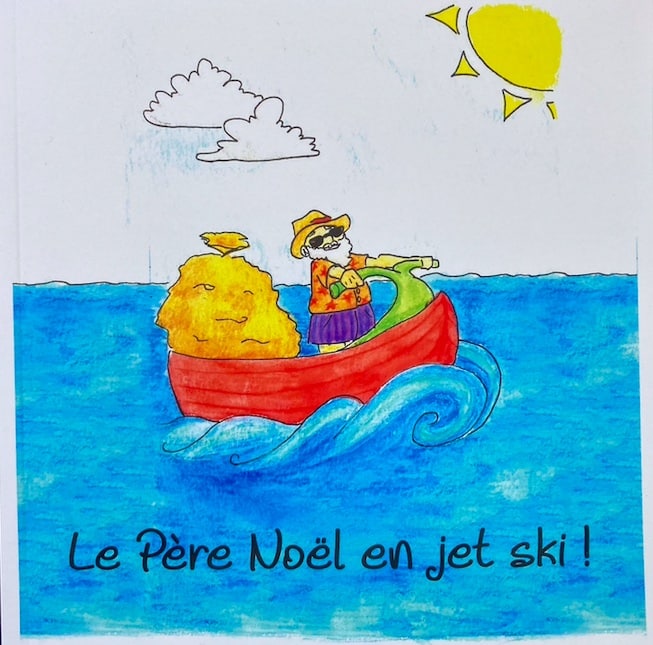 Le Père Noël en jet ski !